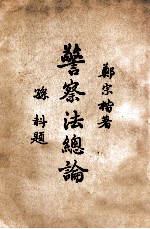 鄭宗楷著
警察法總論
孫科題